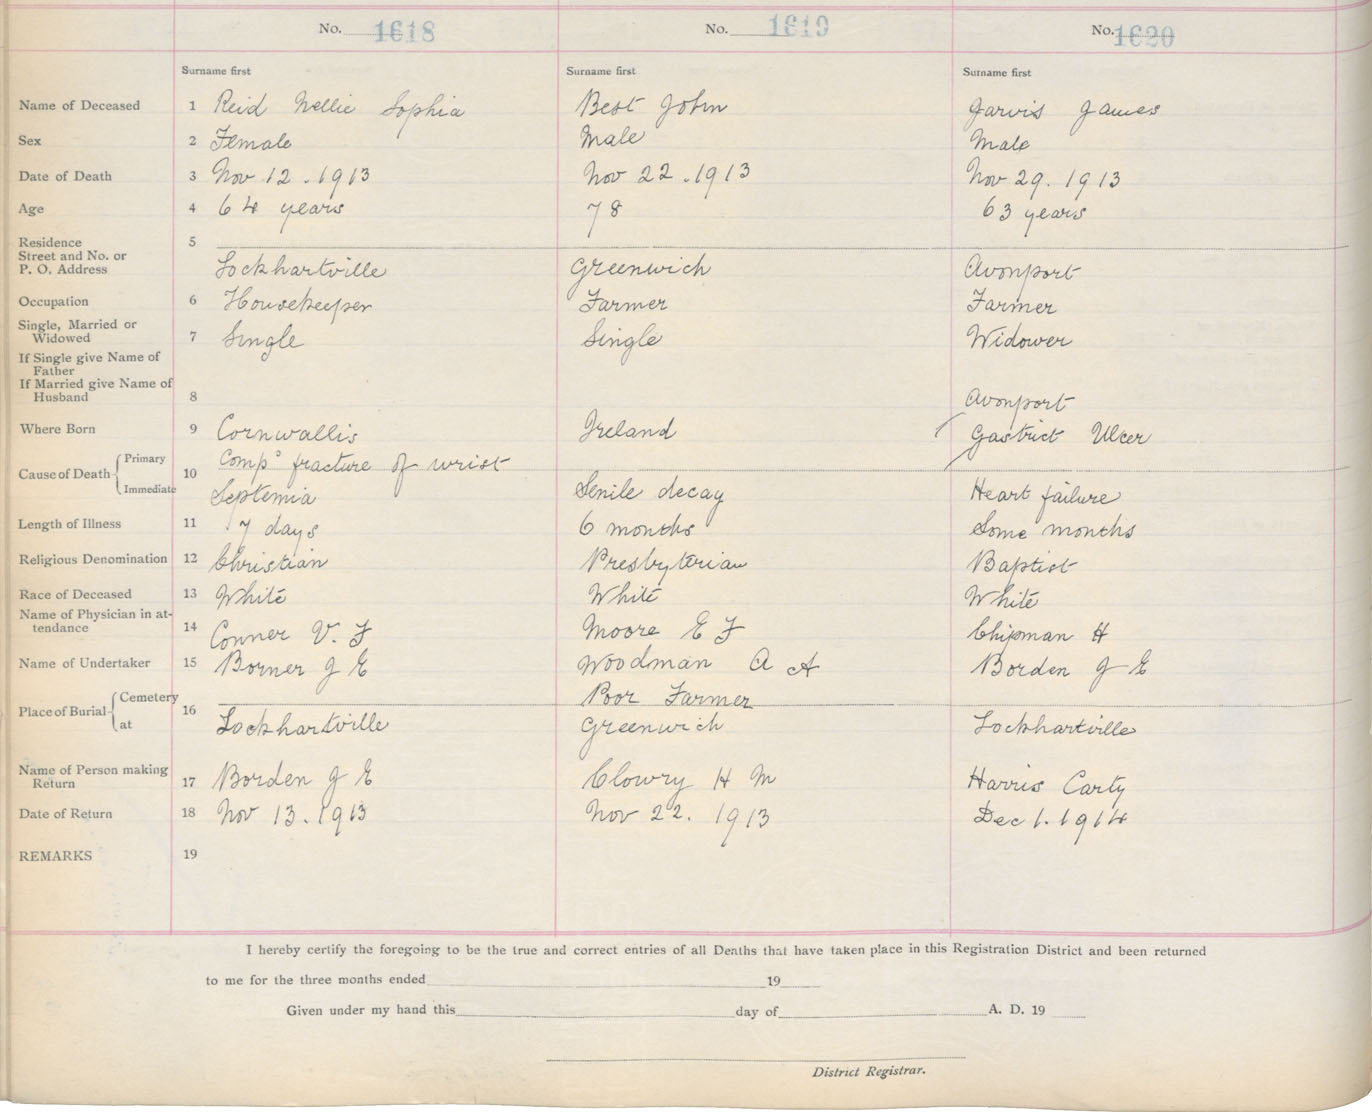 No. 1618 No. 1619 No. 1620
Surname first Surname first Surname first
Name of Deceased 1 Reid Nellie Sophia Best John Jarvis James
Sex 2 Female Male Male
Date of Death 3 Nov 12. 1913 Nov 22. 1913 Nov 29. 1913
Age 4 64 years 78 63 years
Residence 5
Street and No. or
P. O. Address Lockhartville Greenwich Avonport
Occupation 6 Housekeeper Farmer Farmer
Single, Married or
Widowed 7 Single Single Widower
If Single give Name of
Father
If Married give Name of
Husband 8 Avonport
Where Born 9 Cornwallis Ireland Gastrict Ulcer
Cause of Death Primary 10 Comp° fracture of wrist
Immediate Septemia Senile decay Heart failure
Length of Illness 11 7 days 6 months Some months
Religious Denomination 12 Christian Presbyterian Baptist
Race of Deceased 13 White White White
Name of Physician in at-
tendance 14 Conner V. F Moore E F Chipman H
Name of Undertaker 15 Borner J E Woodman A A Borden J E
Place of Burial Cemetery 16 Poor Farmer
at Lockhartville Greenwich Lockhartville
Name of Person making
Return 17 Borden J E Clowry H M Harris Carty
Date of Return 18 Nov 13. 1913 Nov 22. 1913 Dec 1. 1914
REMARKS 19
I hereby certify the foregoing to be the true and correct entries of all Deaths that have taken place in this Registration District and been returned
to me for the three months ended 19
Given under my hand this day of A. D. 19
District Registrar.